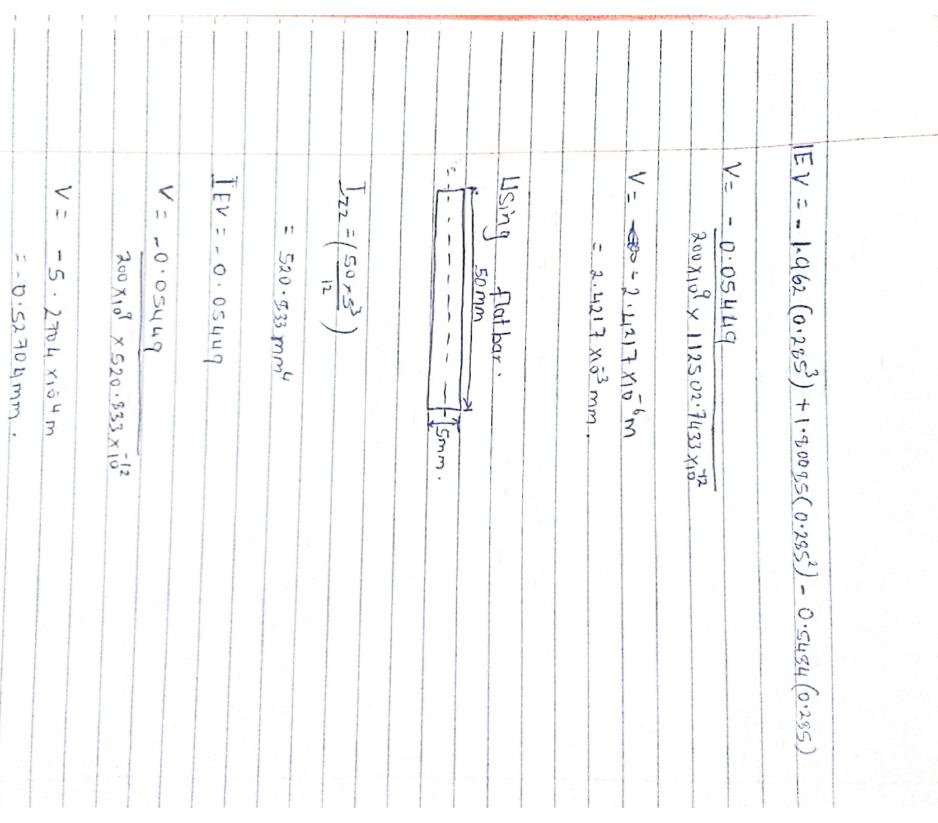 IEV = - 1.962 (0.285³) + 1.80085 (0.285²) - 0.5484 (0.285)
V = - 0.05449
200 x 10⁹ x 112502.7433 x 10⁻¹²
V = - 2.4217 x 10⁻⁶ m
= 2.4217 x 10⁻³ mm.
Using flat bar.
50mm
5mm.
Izz = (50 x 5³ / 12)
= 520.833 mm⁴
IEV = - 0.05449
V = - 0.05449
200 x 10⁹ x 520.833 x 10⁻¹²
V = - 5.2704 x 10⁻⁴ m
= - 0.52704 mm.